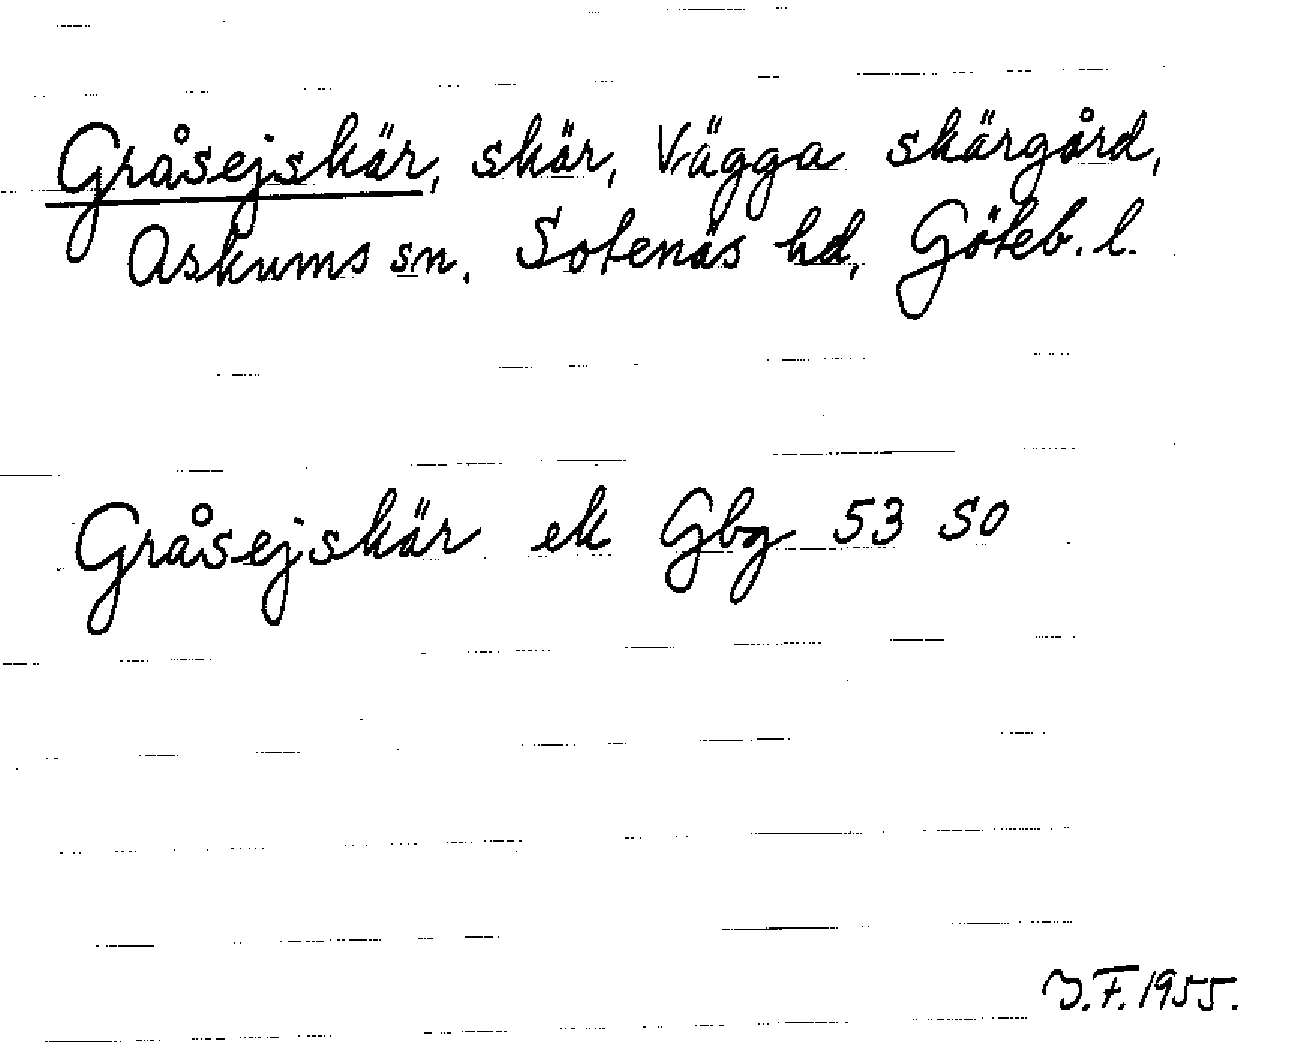 Gråsejskär, skär, Vägga skärgård,
Askums sn, Sotenäs hd, Göteb. l.
Gråsejskär ek Gbg 53 SO
J.F. 1955.